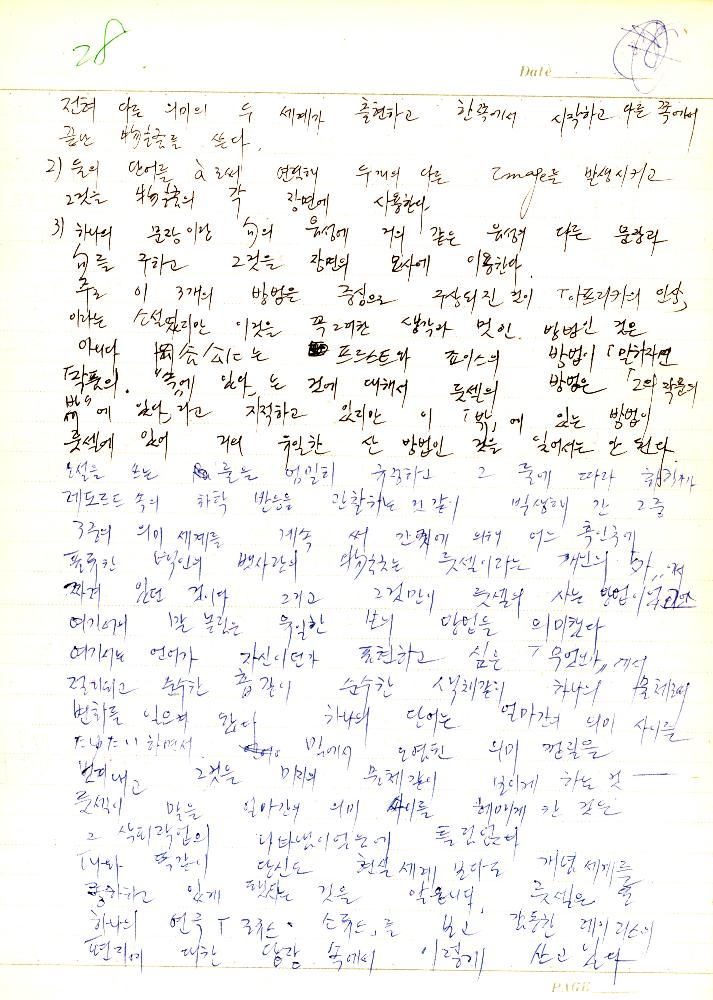 28
Date
전혀 다른 의미의 두 세계가 출현하고 한쪽에서 시작하고 다른 쪽에서
끝난 物語를 쓴다.
2) 둘의 단어를 à로써 연결해 두 개의 다른 Image를 발생시키고
그것을 物語의 각 장면에 사용한다
3) 하나의 문장이란 句의 음성에 거의 같은 음성의 다른 문장과
句를 구하고 그것을 장면의 묘사에 이용한다.
주로 이 3개의 방법을 중심으로 구상되진 것이 「아프리카의 인상」
이라는 소설였지만 이것을 꼭 그러한 생각과 멋인 방법인 것은
아니다 는 프르스트와 죠이스의 방법이 「말하자면
작품의 "속"에 있다」는 것에 대해서 룻셀의 방법은 「그의 작품의
밖"에 있다」라고 지적하고 있지만 이 「밖」에 있는 방법이
룻셀에 있어 거의 유일한 산 방법인 것을 잊어서는 안 된다.
소설을 쓰는 룰을 엄밀히 규정하고 그 룰에 따라
레토르트 속의 화학 반응을 관찰하는 것 같이 발생해 간 2중
3중의 의미 세계를 계속 써 간 것에 의해 어느 흑인국에
표류한 백인의 뱃사람의 物語는 룻셀이라는 개인의
있던 것이다 그리고 그것만이 룻셀의 사는 방법이었고
여기에서 말 놀림은 유일한 삶의 방법을 의미했다
여기서는 언어가 자신이던가 표현하고 싶은 「무엇인가」에서
격리되고 순수한 음같이 순수한 색채같이 하나의 물체로써
변화를 입으며 왔다 하나의 단어는 얼마간의 의미 사이를
하면서 밖에서 오염된 의미 껍질을
벗어내고 그것을 미지의 물체같이 보이게 하는 것 ―
룻셀이 말을 얼마간의 의미 사이를 헤매게 한 것은
그 작업의 나타냄이었음에 틀림없다
「나와 똑같이 당신도 현실 세계 보다도 개념 세계를
좋아하고 있게 했다는 것을 압니다」 룻셀은
하나의 연극 를 보고 감동한 레이리스의
편지에 대한 답장 속에서 이렇게 쓰고 있다
PAGE